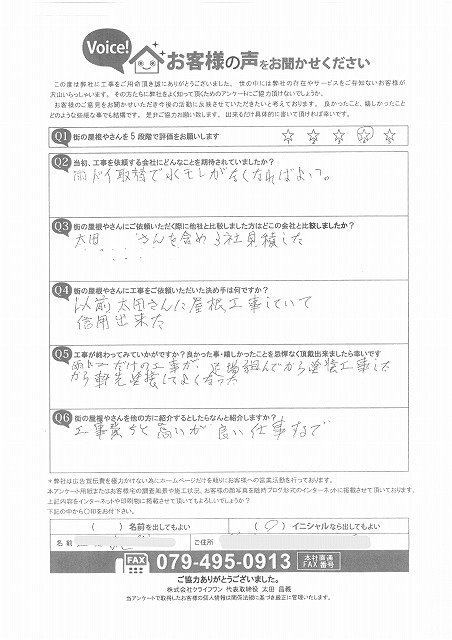 Voice!
お客様の声をお聞かせください
この度は弊社に工事をご用命頂き誠にありがとうございました。世の中には弊社の存在やサービスをご存知ないお客様が
沢山いらっしゃいます。その方たちに弊社をよく知って頂くためのアンケートにご協力頂けないでしょうか。
お客様のご意見をお聞かせいただき今後の活動に反映させていただきたいと考えております。良かったこと、嬉しかったこと
どのような些細な事でも結構です。是非ご協力お願い致します。出来るだけ具体的に書いて頂ければ幸いです。
Q1 街の屋根やさんを5段階で評価をお願いします ☆ ☆ ☆ ☆ ☆
Q2 当初、工事を依頼する会社にどんなことを期待されていましたか?
雨ドイ取替で水モレがなくなればよい。
Q3 街の屋根やさんにご依頼いただく際に他社と比較しました方はどこの会社と比較しましたか?
太田 さんを含め3社見積した
Q4 街の屋根やさんに工事をご依頼いただいた決め手は何ですか?
以前太田さんに屋根工事していて
信用出来た
Q5 工事が終わってみていかがですか?良かった事・嬉しかったことを忌憚なく頂戴出来ましたら幸いです
だけの工事が、足場組んでから塗装工事した
から軒先塗装してよくなった
Q6 街の屋根やさんを他の方に紹介するとしたらなんと紹介しますか?
工事費ちと高いが良い仕事なで
*弊社は広告宣伝費を極力かけない為にホームページだけを頼りにお客様への営業活動を行っております。
本アンケート用紙またはお客様宅の調査風景や施工状況、お客様の顔写真を随時ブログ形式のインターネットに掲載させて頂いております。
上記内容をインターネットや印刷物に掲載させて頂いてもよろしいでしょうか?
下記の中から〇印をお付け下さい。
( )名前を出してもよい (〇)イニシャルなら出してもよい
名前 ご住所
FAX 079-495-0913 本社直通FAX番号
ご協力ありがとうございました。
株式会社クライフワン 代表取締役 太田 昌義
当アンケートで取得したお客様の個人情報は関係法規に基づき厳正に管理いたします。